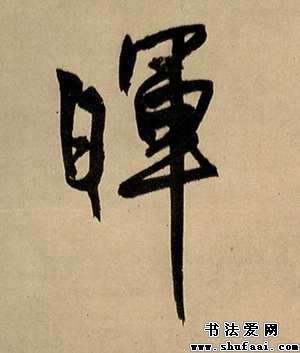 暉
书法爱网
www.shufaai.com